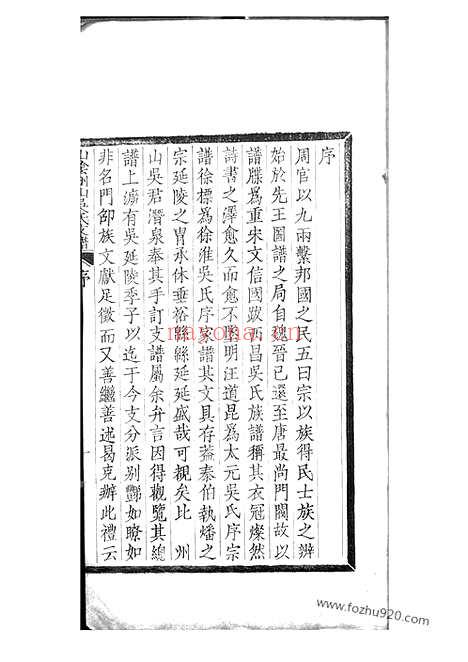 序
周官以九兩繫邦國之民五曰宗以族得民士族之辨
始於先王圖譜之局自魏晉已還至唐最尚門閥故以
譜牒爲重宋文信國跋西昌吳氏族譜稱其衣冠燦然
詩書之澤愈久而愈不墜明汪道昆爲太元吳氏序宗
譜徐標爲徐淮吳氏序家譜其文具存蓋泰伯執燔之
宗延陵之冑承休垂裕緜緜延延盛哉可覩矣比 州
山吳君潛泉奉其手訂支譜屬余弁言因得觀覽其總
譜上溯有吳延陵季子以迄于今支分派别酈如瞭如
非名門卲族文獻足徵而又善繼善述曷克辦此禮云
山陰州山吳氏支譜 序 一
nayona.cn
www.fozhu920.com